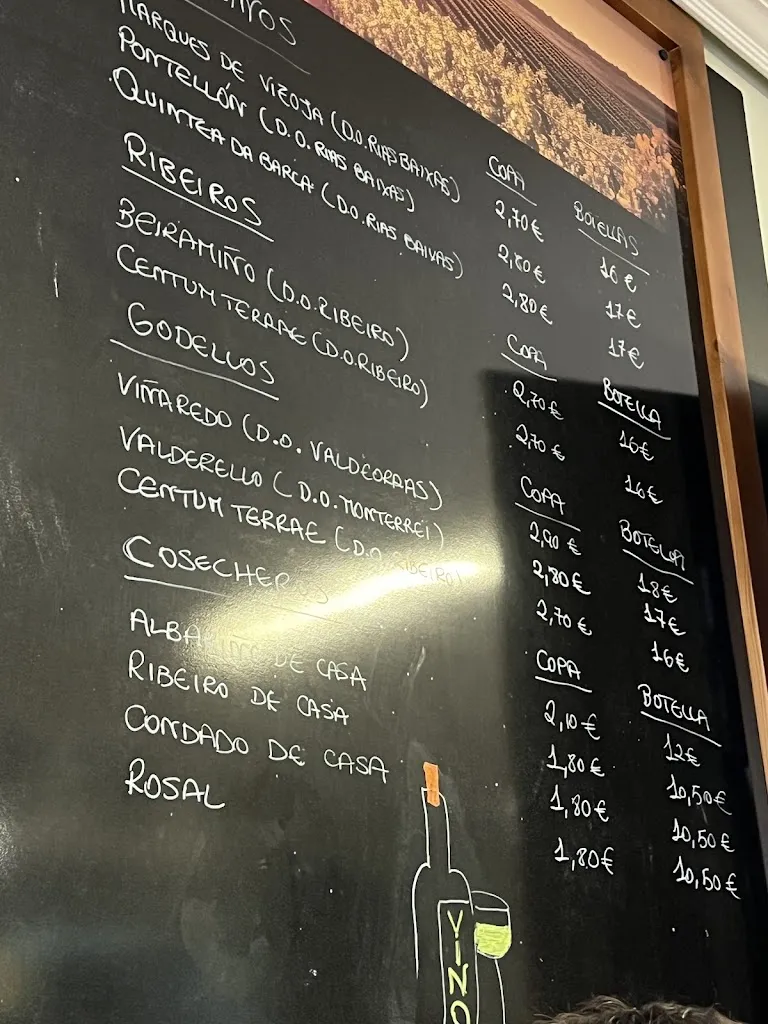 MARQUES DE VIZOJA (D.O.RIAS BAIXAS) 2,70€ 16€
PONTELLÓN (D.O. RIAS BAIXAS) 2,80€ 17€
QUINTEA DA BARCA (D.O. RIAS BAIXAS) 2,80€ 17€
COPA BOTELLAS
RIBEIROS COPA BOTELLA
BEIRAMIÑO (D.O.RIBEIRO) 2,70€ 16€
CENTUM TERRAE (D.O.RIBEIRO) 2,70€ 16€
GODELLOS COPA BOTELLA
VIÑAREDO (D.O. VALDEORRAS) 2,90€ 18€
VALDERELLO (D.O. MONTERREI) 2,80€ 17€
CENTUM TERRAE (D.O. RIBEIRO) 2,70€ 16€
COPA BOTELLA
DE CASA 2,10€ 12€
RIBEIRO DE CASA 1,80€ 10,50€
CONDADO DE CASA 1,80€ 10,50€
ROSAL 1,80€ 10,50€
VINO